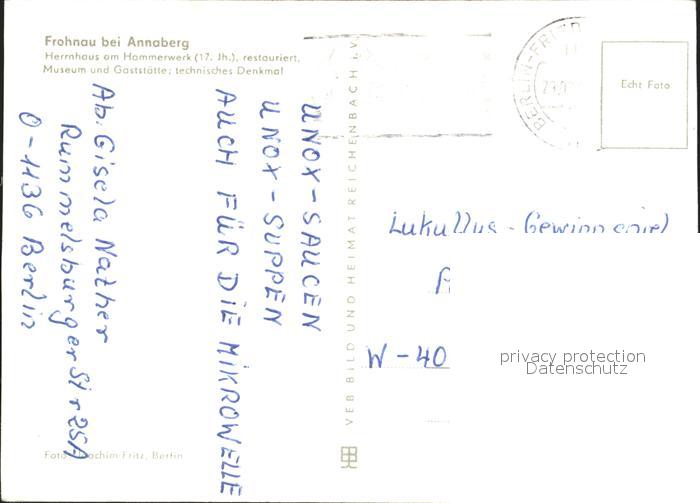 Frohnau bei Annaberg
Herrnhaus am Hammerwerk (17. Jh.), restauriert,
Museum und Gaststätte; technisches Denkmal
UNOX-SAUCEN
UNOX-SUPPEN
AUCH FÜR DIE MIKROWELLE
Ab: Gisela Nather
Rummelsburger Str 25A
O-1136 Berlin
VEB BILD UND HEIMAT REICHENBACH I.V.
BERLIN-FRIED
Echt Foto
Lukullus-Gewinnspiel
W-40
privacy protection
Datenschutz
Foto: Joachim Fritz, Berlin